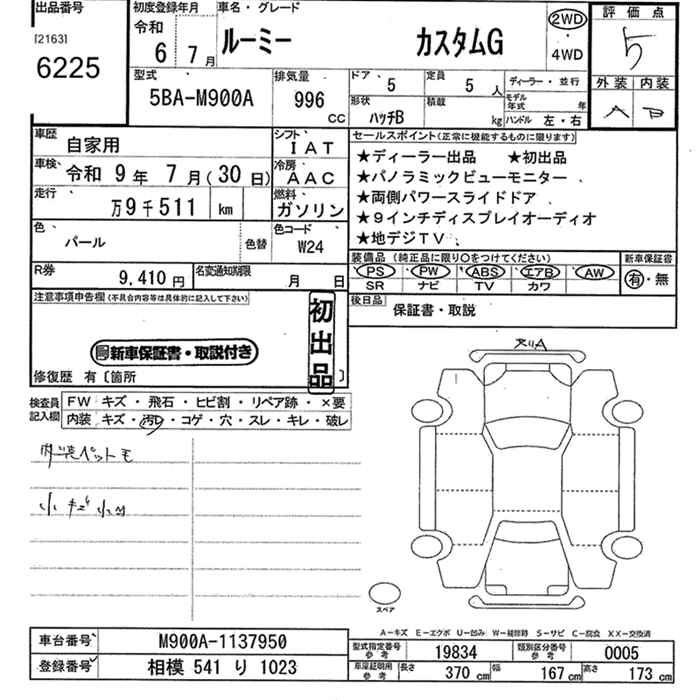 出品番号
[2163]
6225
初度登録年月
令和
6年 7月
車名・グレード
ルーミー カスタムG
2WD
・
4WD
評価点
5
外装 内装
A B
型式
5BA-M900A
排気量
996
CC
ドア
5
定員
5人
形状
ハッチB
積載
kg
ディーラー・並行
モデル年式 年
ハンドル 左・右
車歴
自家用
車検
令和 9年 7月(30日)
走行
万9千511 km
シフト
IAT
冷房
AAC
燃料
ガソリン
色
パール
色替
色コード
W24
R券
9,410円
名変通知期限
月 日
セールスポイント(正常に機能するものに限ります)
★ディーラー出品 ★初出品
★パノラミックビューモニター
★両側パワースライドドア
★9インチディスプレイオーディオ
★地デジTV
装備品(純正品に限り〇をつけてください)
PS PW ABS エアB AW
SR ナビ TV カワ
新車保証書
有・無
後日品
保証書・取説
注意事項申告欄(不具合内容等は具体的に記入して下さい)
初出品
新車保証書・取説付き
修復歴 有〔箇所 〕
検査員記入欄
FW キズ・飛石・ヒビ割・リペア跡・×要
内装 キズ・汚レ・コゲ・穴・スレ・キレ・破レ
内装ペットモ
小キズ小凹
スペア
A−キズ E−エクボ U−凹み W−補修跡 S−サビ C−腐食 XX−交換済
車台番号
M900A-1137950
登録番号
相模 541 り 1023
型式指定番号
参考
19834
類別区分番号
参考
0005
車庫証明用
参考
長さ
370 cm
幅
167 cm
高さ
173 cm